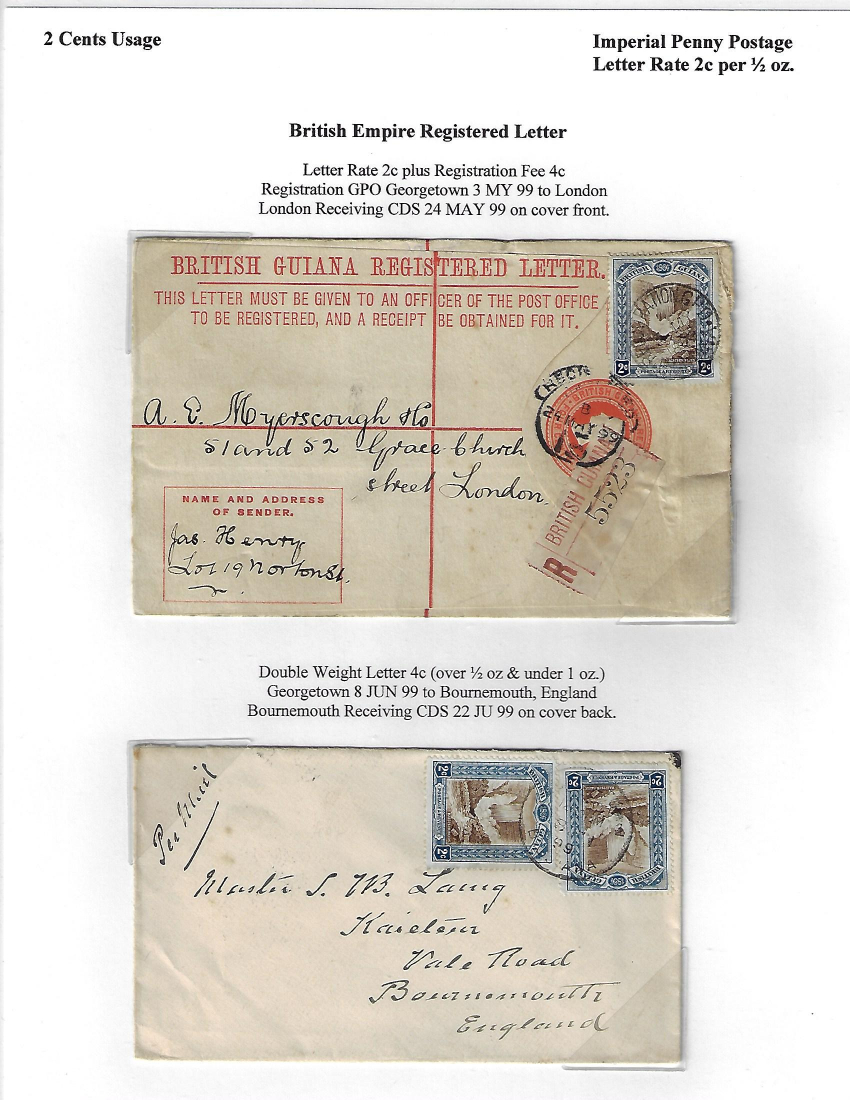 2 Cents Usage
Imperial Penny Postage
Letter Rate 2c per ½ oz.
British Empire Registered Letter
Letter Rate 2c plus Registration Fee 4c
Registration GPO Georgetown 3 MY 99 to London
London Receiving CDS 24 MAY 99 on cover front.
BRITISH GUIANA REGISTERED LETTER.
THIS LETTER MUST BE GIVEN TO AN OFFICER OF THE POST OFFICE
TO BE REGISTERED, AND A RECEIPT BE OBTAINED FOR IT.
BRITISH 1898 GUIANA
2c 2c
A. E. Myerscough & Co
51 and 52 Grace Church
street London
R BRITISH GUIANA
5523
NAME AND ADDRESS
OF SENDER.
Jas. Henry
Lot 19 Norton St.
Double Weight Letter 4c (over ½ oz & under 1 oz.)
Georgetown 8 JUN 99 to Bournemouth, England
Bournemouth Receiving CDS 22 JU 99 on cover back.
Per Mail
BRITISH 1898 GUIANA
2c 2c
BRITISH 1898 GUIANA
2c 2c
Master S. W. Laing
Kaieteur
Vale Road
Bournemouth
England